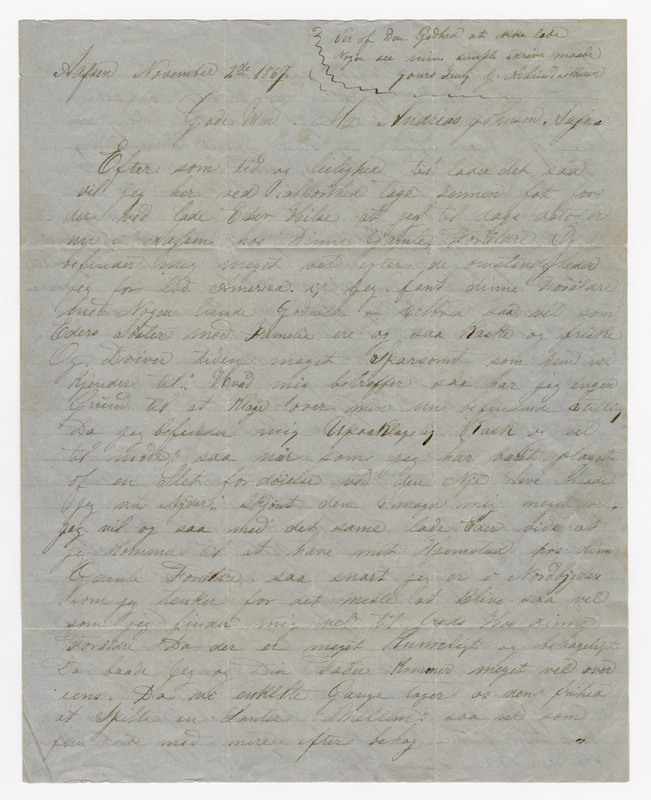 Vis af Den Godhed at ikke lade
Nogen see min simple skrive maade
yours Truly
November 2de 1867
Gode Ven Mr Andreas Johnson
Efter som tid og leilighed til lader det saa
vil jeg her ved tage Pennen fat for
der ved lade Eder Vide at jeg til dags dato er
nu i hos Dinne Gamle Foreldre Og
befinder mig meget vel efter de omstendigheder
jeg for lod America. Jeg fant dinne Foreldre
med Nogen lunde Godhelse og Velferd saa vel som
Eders Søster med Familie ere og saa Raske og friske
Og Driver tiden meget Sparsomt som dem vel
kjender til. Hvad mig betreffer saa har jeg engen
Grund til at Klage over min nu verende Stilling
Da jeg befinner mig Upaaklagelig Rask og vel
til mode, saa når som jeg har vært plaget
af en slet fordøielse ved den Nye Leve Maade
jeg nu Nyder, Skjønt den Smager mig meget vel.
jeg vil og saa med det same lade Eder vide at
jeg kommer til at have mit Hjemsted hos dine
Gamle Foreldre. saa snart jeg er i
som jeg tenker for det meste at blive saa vel
som jeg finder mig vel til freds hos dinne
Foreldre Da der er meget Rumeligt og behageligt
Da baade Jeg og Din Fader kommer meget vel over
eens. Da vi enkelte Gange tager os den frihed
at Spille en imellem saa vel som
med mere efter behag